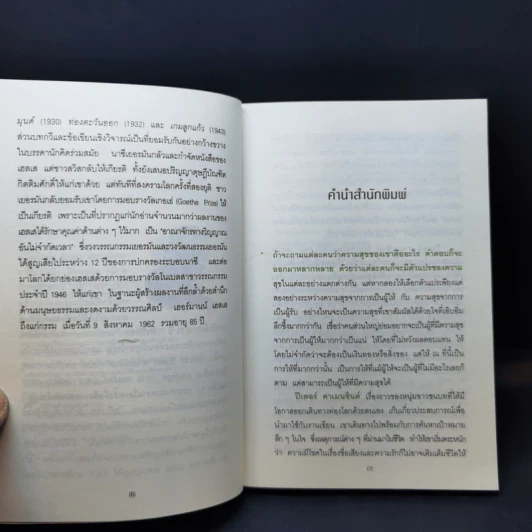 มุนด์ (1930) ท่องตะวันออก (1932) และ เกมลูกแก้ว (1943)
ส่วนบทกวีและข้อเขียนเชิงวิจารณ์เป็นที่ยอมรับกันอย่างกว้างขวาง
ในบรรดานักคิดร่วมสมัย นาซีเยอรมันกลัวและกำจัดหนังสือของ
เฮสเส แต่ชาวสวิสกลับให้เกียรติ ทั้งยังเสนอปริญญาดุษฎีบัณฑิต
กิตติมศักดิ์ให้แก่เขาด้วย แต่ทันทีที่สงครามโลกครั้งที่สองยุติ ชาว
เยอรมันกลับยอมรับเขาโดยการมอบรางวัลเกอเธ่ (Goethe Prize) ให้
เป็นเกียรติ เพราะเป็นที่ปรากฏแก่นักอ่านจำนวนมากว่าผลงานของ
เฮสเสได้รักษาคุณค่าด้านต่าง ๆ ไว้มาก เป็น "อาณาจักรทางวิญญาณ
อันไม่จำกัดเวลา" ซึ่งวงวรรณกรรมเยอรมันและวงวัฒนธรรมเยอรมัน
ได้สูญเสียไประหว่าง 12 ปีของการปกครองระบอบนาซี และต่อ
มาโลกได้ยกย่องเฮสเสด้วยการมอบรางวัลโนเบลสาขาวรรณกรรม
ประจำปี 1946 ให้แก่เขา ในฐานะผู้สร้างผลงานที่ลึกล้ำด้วยสำนึก
ด้านมนุษยธรรมและงดงามด้วยวรรณศิลป์ เฮอร์มานน์ เฮสเส
ถึงแก่กรรม เมื่อวันที่ 9 สิงหาคม 1962 รวมอายุ 85 ปี
คำนำสำนักพิมพ์
ถ้าจะถามแต่ละคนว่าความสุขของเขาคืออะไร คำตอบก็จะ
ออกมาหลากหลาย ด้วยว่าแต่ละคนก็จะมีตัวแปรของความ
สุขในแต่ละอย่างแตกต่างกัน แต่หากลองให้เลือกตัวแปรเพียงแค่
สองอย่างระหว่างความสุขจากการเป็นผู้ให้ กับ ความสุขจากการ
เป็นผู้รับ อย่างไหนจะเป็นความสุขที่เขาสัมผัสได้ด้วยใจที่เอิบอิ่ม
ลึกซึ้งมากกว่ากัน เชื่อว่าคนส่วนใหญ่ย่อมอยากจะเป็นผู้ที่มีความสุข
จากการเป็นผู้ให้มากกว่าเป็นแน่ ให้โดยที่ไม่หวังผลตอบแทน ให้
โดยไม่จำกัดว่าจะต้องเป็นเงินทองหรือสิ่งของ แต่ให้ ณ ที่นี้เป็น
การให้ที่มากกว่านั้น เป็นการให้ที่แม้ผู้ให้จะเป็นผู้ที่ไม่มีอะไรเลยก็
ตาม แต่สามารถเป็นผู้ให้ที่มีความสุขได้
ปีเตอร์ คาเมนซินด์ เรื่องราวของหนุ่มชาวชนบทที่ได้มี
โอกาสออกเดินทางท่องโลกด้วยตนเอง เก็บเกี่ยวประสบการณ์เพื่อ
นำมาใช้กับงานเขียน เขาเดินทางไปพร้อมกับการค้นหาเป้าหมาย
ลึก ๆ ในใจ ซึ่งเหตุการณ์ต่าง ๆ ที่ผ่านมาในชีวิต ทำให้เขาเริ่มตระหนัก
ว่า ความมีโชคในเรื่องชื่อเสียงและความรักก็ไม่อาจเติมเต็มชีวิตให้